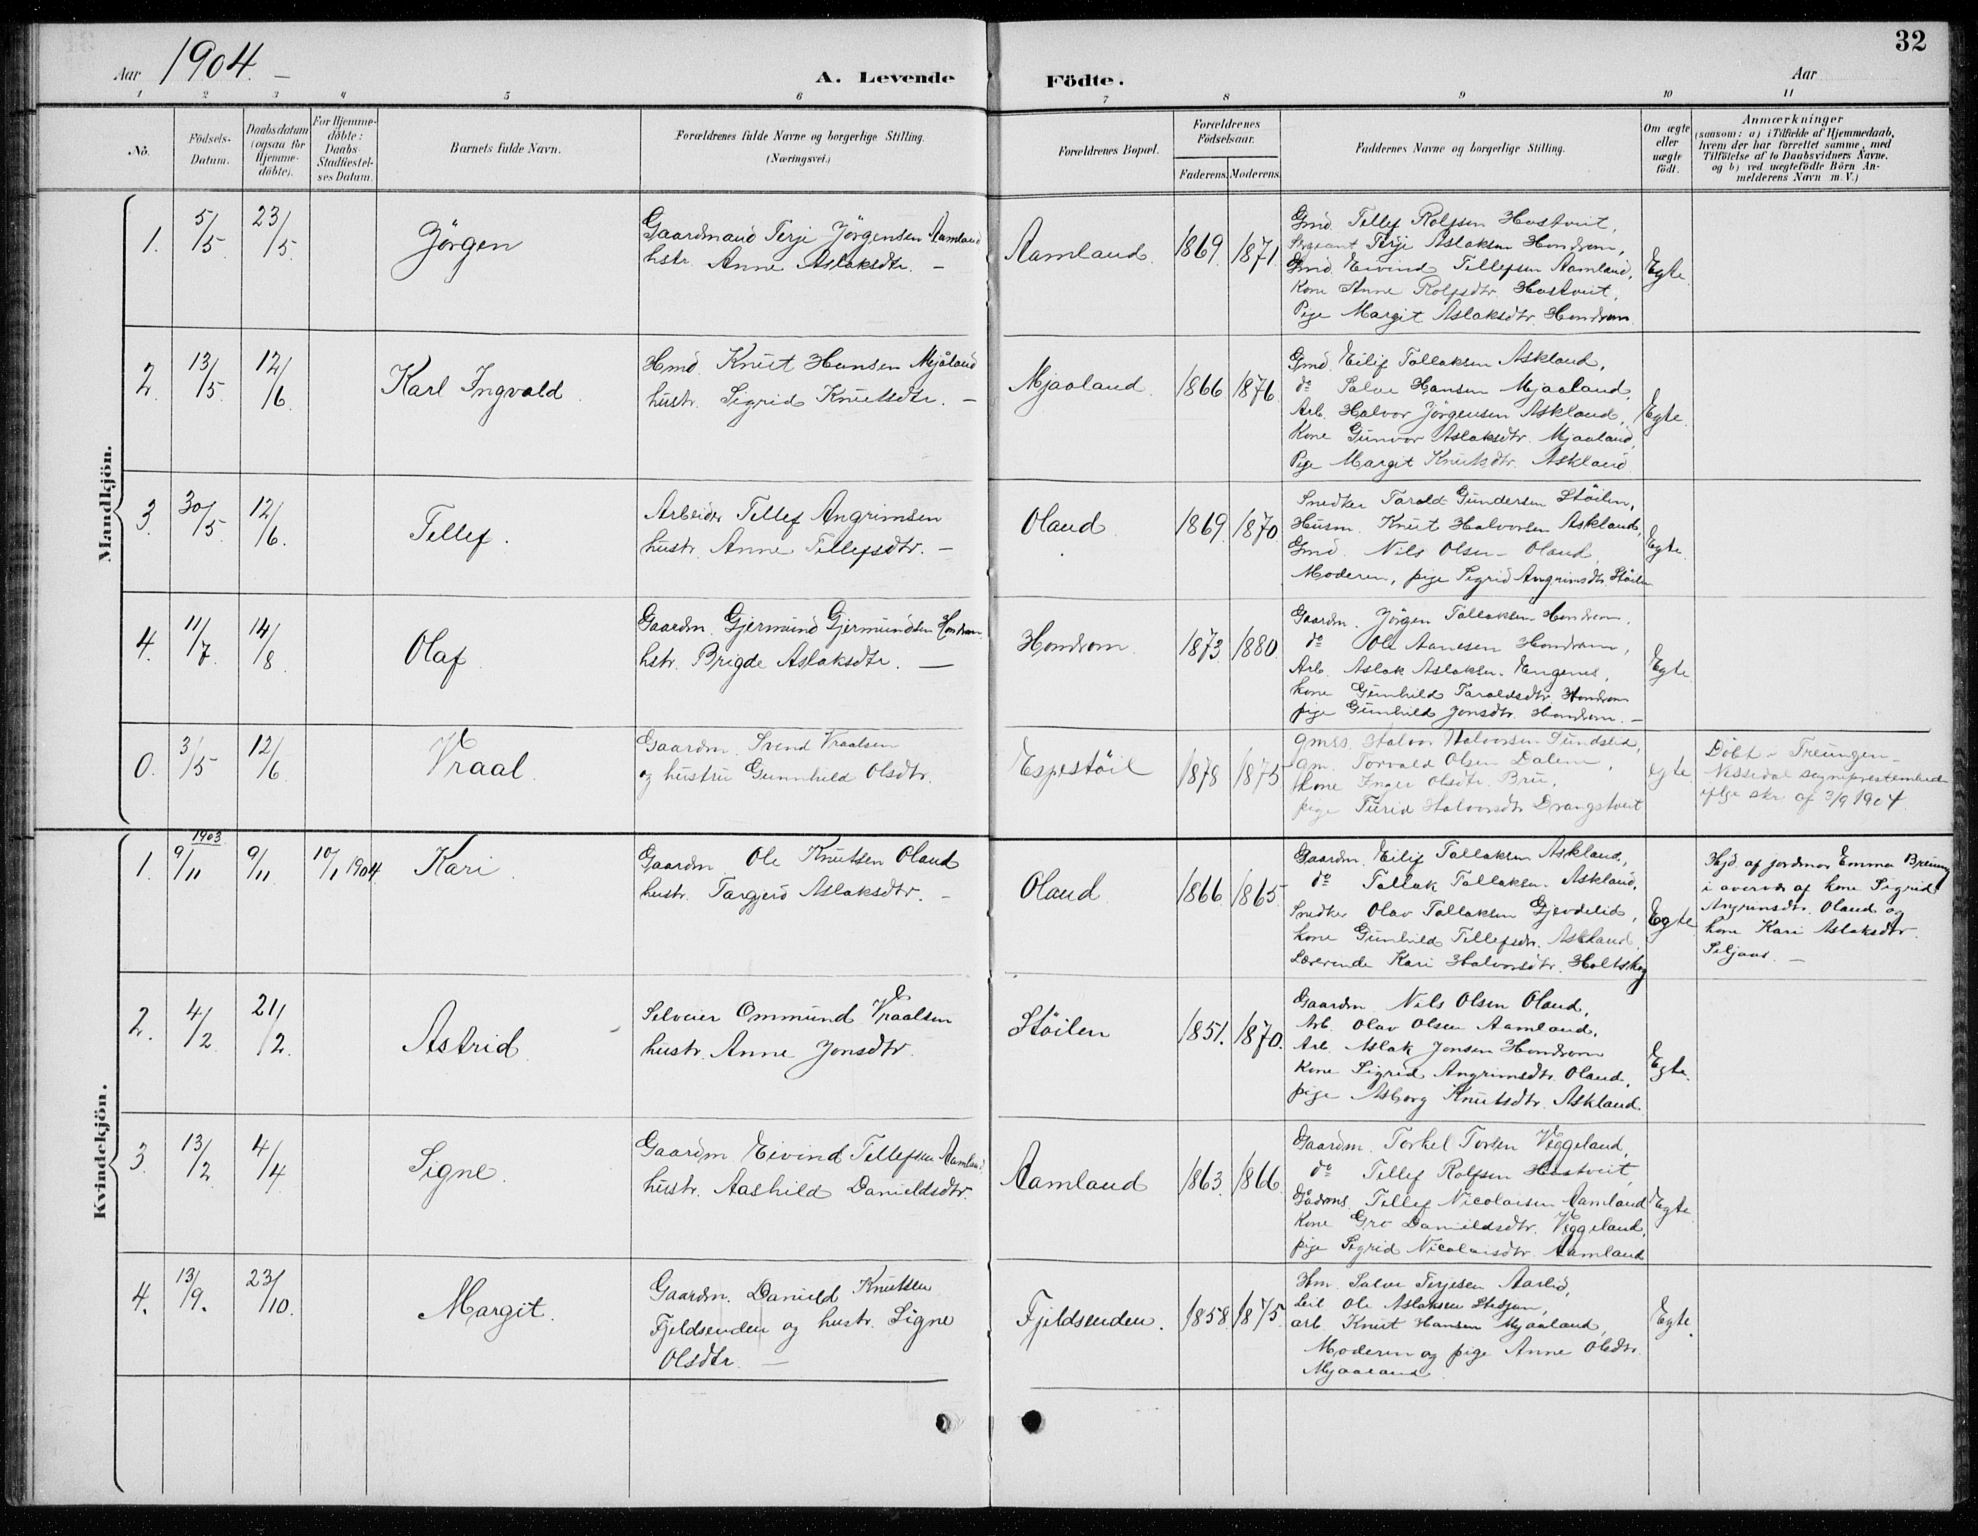 32
Aar 1904.
A. Levende Födte.
Aar
1 2 3 4 5 6 7 8 9 10 11
No.
Födsels-Datum.
Daabsdatum (ogsaa for Hjemme-döbte).
For Hjemme-döbte: Daabs-Stadfæstel-ses Datum.
Barnets fulde Navn.
Forældrenes fulde Navne og borgerlige Stilling.
(Næringsvei.)
Forældrenes Bopæl.
Forældrenes Födselsaar.
Faderens. Moderens.
Faddernes Navne og borgerlige Stilling.
Om ægte eller uægte födt.
Anmærkninger
(saasom: a) i Tilfælde af Hjemmedaab,
hvem der har forrettet samme, med
Tilföielse af to Daabsvidners Navne,
og b) ved uægtefödte Börn An-
melderens Navn m. V.)
Mandkjön.
1. 5/5 23/5 Jörgen
Gaardmand Terje Jörgensen Aamland
hstr. Anne Aslaksdtr. —
Aamland. 1869. 1871.
Gmd. Tellef Rolfsen Hastveit,
Sergeant Terje Aslaksen Hondrom,
Gmd. Eivind Tellefsen Aamland,
Kone Anne Rolfsdtr. Hastveit,
Pige Margit Aslaksdtr. Hondrom
Egte
2. 13/5 12/6. Karl Ingvald.
Hmd. Knut Hansen Mjåland
hustr. Sigrid Knutsdtr. —
Mjaaland. 1866 1876.
Gmd. Eilif Tallaksen Askland,
do Salve Hansen Mjaaland,
Arb. Halvor Jörgensen Askland,
Kone Gunvor Aslaksdtr. Mjaaland,
Pige Margit Knutsdtr. Askland.
Egte.
3. 30/5 12/6. Tellef.
Arbeider Tellef Angrimsen
hustr. Anne Tellefsdtr. —
Oland. 1869. 1870
Snedker Tarald Gundersen Stöilen,
Husm. Knut Halvorsen Askland,
Gmd. Nils Olsen Oland,
Moderen, pige Sigrid Angrimsdtr. Stöilen
Egte.
4. 11/7. 14/8 Olaf.
Gaardm. Gjermund Gjermundsen Hondrom
hstr. Brigde Aslaksdtr. —
Hondrom. 1873. 1880.
Gaardm. Jörgen Tallaksen Hondrom,
do Ole Aanesen Hondrom,
Arb. Aslak Aslaksen Engenes,
Kone Gunhild Taraldsdtr. Hondrom
pige Gunhild Jonsdtr. Hondrom. —
Egte
0. 3/5 12/6 Vraal.
Gaardm. Svend Vraalsen
og hustru Gunnhild Olsdtr.
Espestöil 1878 1875
Gmds. Halvor Halvorsen Sundslid,
gm. Torvald Olsen Dalen,
Kone Inger Olsdtr. Bru,
pige Turid Halvorsdtr. Drangstveit
egte
Döbt – Treungen –
Nissedal sogneprestembed
ifge skr. af 3/9 1904.
Kvindekjön.
1. 1903 9/11 9/11 10/1 1904 Kari.
Gaardm. Ole Knutsen Oland
hustr. Targjerd Aslaksdtr. —
Oland. 1866. 1865.
Gaardm. Eilif Tallaksen Askland,
do Tallak Tallaksen Askland,
Snedker Olav Tallaksen Gjevdelid,
Kone Gunhild Tellefsdtr. Askland,
Lærerinde Kari Halvorsdtr. Holtskog
Egte
Hjd. af jordmor Emma Breung
i overvær af kone Sigrid
Angrimsdtr. Oland og
kone Kari Aslaksdtr.
Seljaas. —
2. 4/2 21/2. Astrid.
Selveier Ommund Vraalsen
hustr. Anne Jonsdtr.
Stöilen 1851. 1870.
Gaardm Nils Olsen Oland,
Arb. Olav Olsen Aamland,
Arb. Aslak Jonsen Hondrom
Kone Sigrid Angrimsdtr. Oland,
pige Asborg Knutsdtr. Askland
Egte.
3. 13/2 4/4 Signe.
Gaardm Eivind Tellefsen Aamland
hustr. Aashild Danieldsdtr.
Aamland 1863. 1866.
Gaardm. Torkel Torsen Veggeland,
do Tellef Rolfsen Hastveit,
Gådms. Tellef Nicolaisen Aamland
Kone Gro Danieldsdtr. Veggeland,
pige Sigrid Nicolaisdtr. Aamland
Egte.
4. 13/9. 23/10. Margit.
Gaardm. Danield Knutsen
Fjeldsenden og hustr. Signe
Olsdtr. —
Fjeldsenden. 1858. 1875.
Hm. Salve Terjesen Aarlid,
Leil. Ole Aslaksen
arb. Knut Hansen Mjaaland,
Moderen og pige Anne Olsdtr.
Mjaaland
Egte.